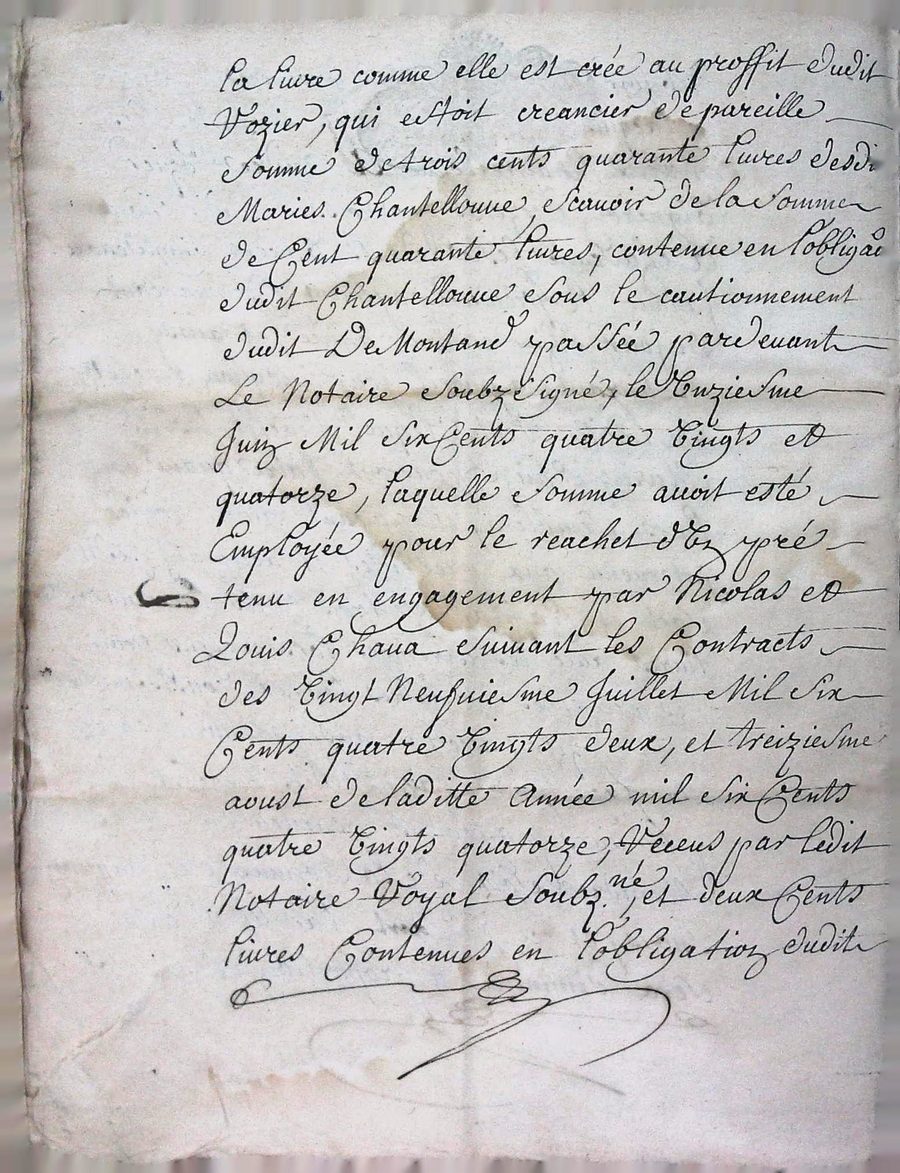 la livre comme elle est crée au proffit dudit
Rozier, qui estoit creancier de pareille
somme de trois cents quarante livres desd.
Maries Chantellouue, scauoir de la somme
de Cent quarante liures, contenue en l'obligâo
dudit Chantellouue sous le cautionnement
dudit De Montand passée pardeuant
Le Notaire soubzsigné, le Unziesme
Juin Mil six Cents quatre Vingts et
quatorze, laquelle somme auoit esté
Employée pour le reachet d'Un pré
tenu en engagement par Nicolas et
Louis Chaua suiuant les Contracts
des Vingt Neufuiesme Juillet Mil six
Cents quatre Vingts deux, et treiziesme
aoust de laditte Année mil six Cents
quatre Vingts quatorze, Receus par ledit
Notaire Royal soubz.né, et deux Cents
liures Contenues en l'obligation dudit